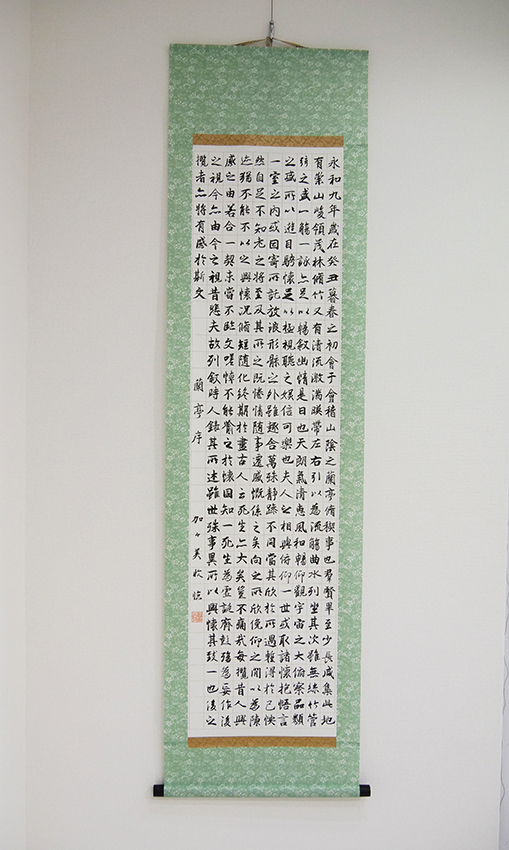 永和九年歳在癸丑暮春之初會于會稽山陰之蘭亭脩禊事也羣賢畢至少長咸集此地
有崇山峻領茂林脩竹又有清流激湍暎帶左右引以為流觴曲水列坐其次雖無絲竹管
弦之盛一觴一詠亦足以暢敘幽情是日也天朗氣清惠風和暢仰觀宇宙之大俯察品類
之盛所以遊目騁懷足以極視聽之娯信可樂也夫人之相與俯仰一世或取諸懷抱悟言
一室之内或因寄所託放浪形骸之外雖趣舎萬殊静躁不同當其欣於所遇蹔得於己怏
然自足不知老之將至及其所之既惓情随事遷感慨係之矣向之所欣俛仰之閒以為陳
迹猶不能不以之興懷況脩短随化終期於盡古人云死生亦大矣豈不痛哉每攬昔人興
感之由若合一契未嘗不臨文嗟悼不能喻之於懷固知一死生為虚誕齊彭殤為妄作後
之視今亦由今之視昔悲夫故列敘時人録其所述雖世殊事異所以興懷其致一也後之
攬者亦將有感於斯文 蘭亭序 加々美